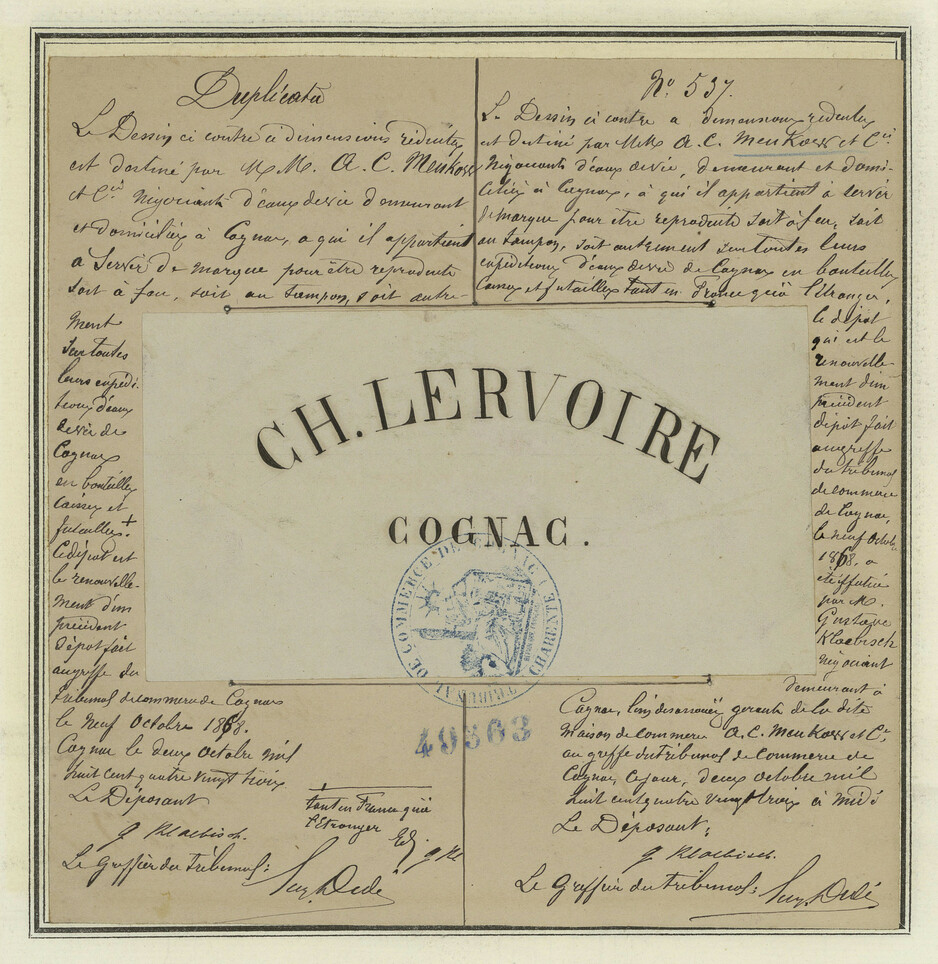 Duplicata
Le Dessin ci contre à dimensions réduites
est destiné par M.M. A. C. Meukow
et Cie Négociants d'eaux de vie demeurant
et domiciliés à Cognac, a qui il appartient
a Servir de marque pour être reproduite
soit à feu, soit au tampon, soit autre-
ment
sur toutes
leurs expédi-
tions d'eaux
de vie de
Cognac
en bouteilles
caisses et
futailles. +
Ce dépôt est
le renouvelle-
ment d'un
précédent
dépôt fait
au greffe du
tribunal de commerce de Cognac
le Neuf Octobre 1868.
Cognac le deux octobre mil
huit cent quatre vingt trois
Le Déposant
g Klaebisch.
Le Greffier du Tribunal:
+ tant en France qu'à
l'étranger
g Kl
No. 537.
Le Dessin ci contre a dimensions réduites
est destiné par M.M. A. C. Meukow et Cie
Négociants d'eaux de vie, demeurant et domi-
ciliés à Cognac, à qui il appartient à servir
de marque pour être reproduite soit à feu, soit
au tampon, soit autrement sur toutes leurs
expéditions d'eaux de vie de Cognac en bouteilles
caisses et futailles tant en France qu'à l'étranger,
le dépôt
qui est le
renouvelle-
ment d'un
précédent
dépôt fait
au greffe
du tribunal
de commerce
de Cognac,
le neuf Octobre
1868, a
été effectué
par M.
Gustave
Klaebisch
négociant
demeurant à
Cognac, l'un des associés gerents de la dite
Maison de commerce A. C. Meukow et Cie,
au greffe du tribunal de Commerce de
Cognac, ce jour, deux octobre mil
huit cent quatre vingt trois à midi
Le Déposant:
g Klaebisch.
Le Greffier du tribunal:
CH. LERVOIRE
COGNAC.
TRIBUNAL DE COMMERCE DE COGNAC (CHARENTE)
49303